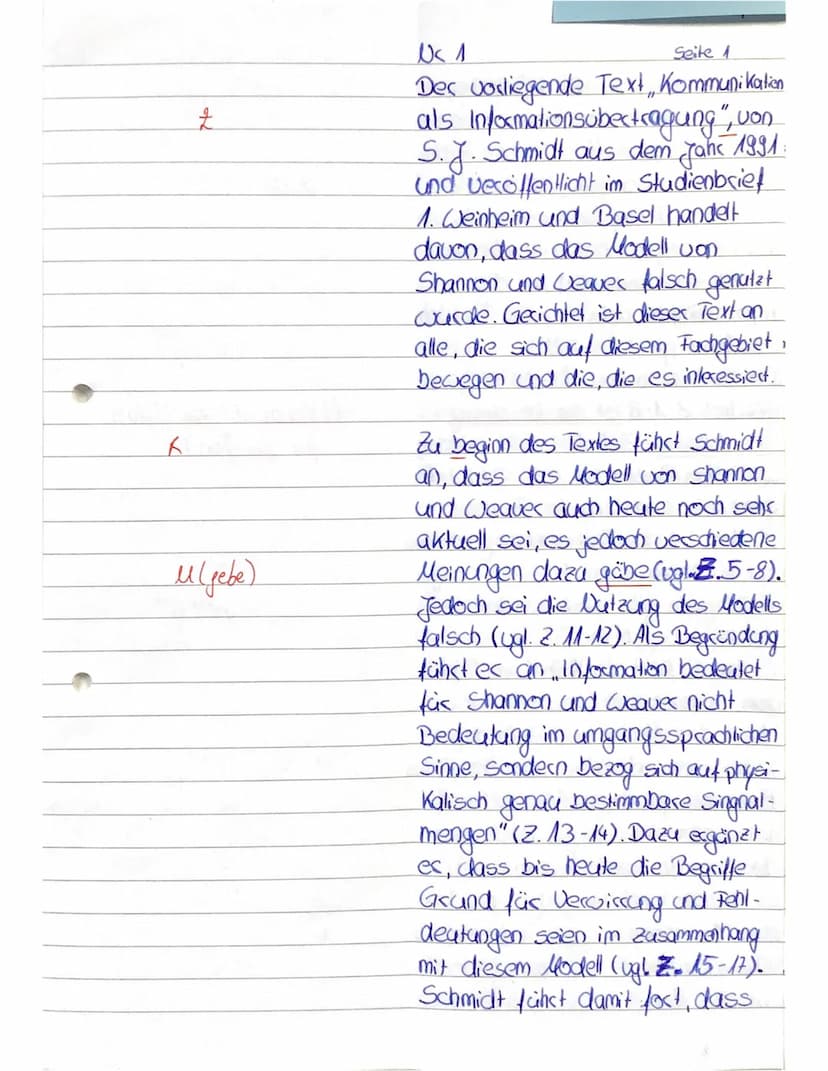 Nr 1 Seite 1
Der vorliegende Text „Kommunikation
Z als Informationsübertragung", von
S. J. Schmidt aus dem Jahr 1991
und veröffentlicht im Studienbrief
1. Weinheim und Basel handelt
davon, dass das Modell von
Shannon und Weaver falsch genutzt
wurde. Gerichtet ist dieser Text an
alle, die sich auf diesem Fachgebiet
bewegen und die, die es interessiert.
R Zu beginn des Textes führt Schmidt
an, dass das Modell von Shannon
und Weaver auch heute noch sehr
aktuell sei, es jedoch verschiedene
M (gebe) Meinungen dazu gäbe (vgl. Z. 5-8).
Jedoch sei die Nutzung des Modells
falsch (vgl. Z. 11-12). Als Begründung
führt er an „Information bedeutet
für Shannon und Weaver nicht
Bedeutung im umgangssprachlichen
Sinne, sondern bezog sich auf physi-
kalisch genau bestimmbare Singnal-
mengen" (Z. 13-14). Dazu ergänzt
er, dass bis heute die Begriffe
Grund für Verwirrung und Fehl-
deutungen seien im zusammenhang
mit diesem Modell (vgl. Z. 15-17).
Schmidt führt damit fort, dass